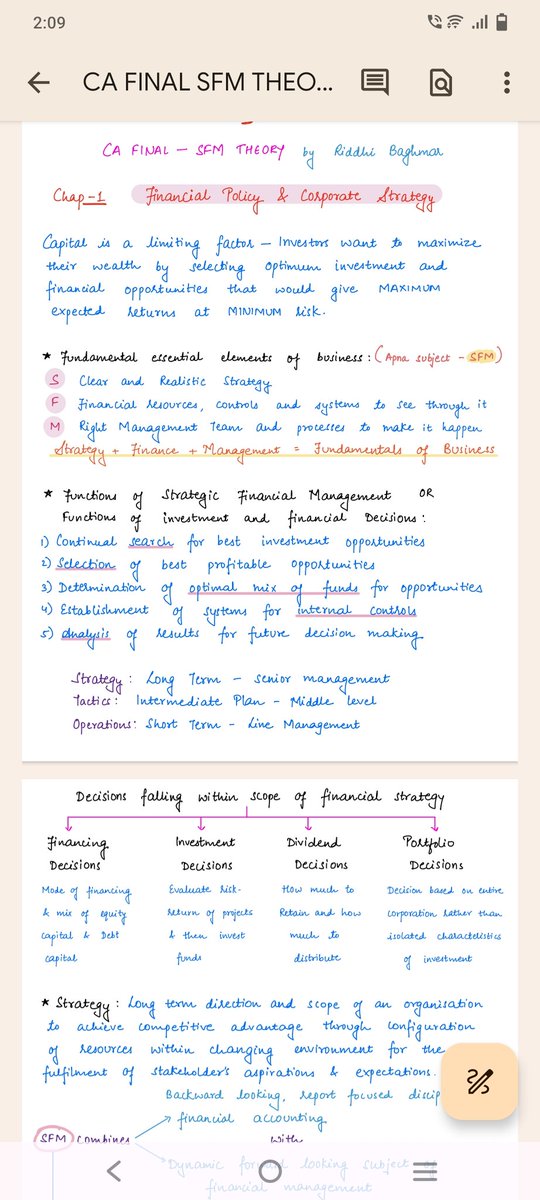 2:09
CA FINAL SFM THEO...
CA FINAL — SFM THEORY by Riddhi Baghmar
Chap-1 Financial Policy & Corporate Strategy
Capital is a limiting factor – Investors want to maximize
their wealth by selecting optimum investment and
financial opportunities that would give MAXIMUM
expected returns at MINIMUM risk.
★ Fundamental essential elements of business: (Apna subject - SFM)
S Clear and Realistic Strategy
F Financial resources, controls and systems to see through it
M Right Management Team and processes to make it happen
Strategy + Finance + Management = Fundamentals of Business
★ Functions of Strategic Financial Management OR
Functions of investment and financial Decisions:
1) Continual search for best investment opportunities
2) Selection of best profitable opportunities
3) Determination of optimal mix of funds for opportunities
4) Establishment of systems for internal controls
5) Analysis of results for future decision making
Strategy: Long Term – Senior management
Tactics: Intermediate Plan – Middle level
Operations: Short Term – Line Management
Decisions falling within scope of financial strategy
Financing Decisions
Mode of financing
& mix of equity
capital & Debt
capital
Investment Decisions
Evaluate risk-
return of projects
& then invest
funds
Dividend Decisions
How much to
Retain and how
much to
distribute
Portfolio Decisions
Decision based on entire
corporation rather than
isolated characteristics
of investment
★ Strategy: Long term direction and scope of an organisation
to achieve competitive advantage through configuration
of resources within changing environment for the
fulfilment of stakeholder's aspirations & expectations.
Backward looking, report focused discip
financial accounting
SFM combines with
Dynamic forward looking subject of
financial management